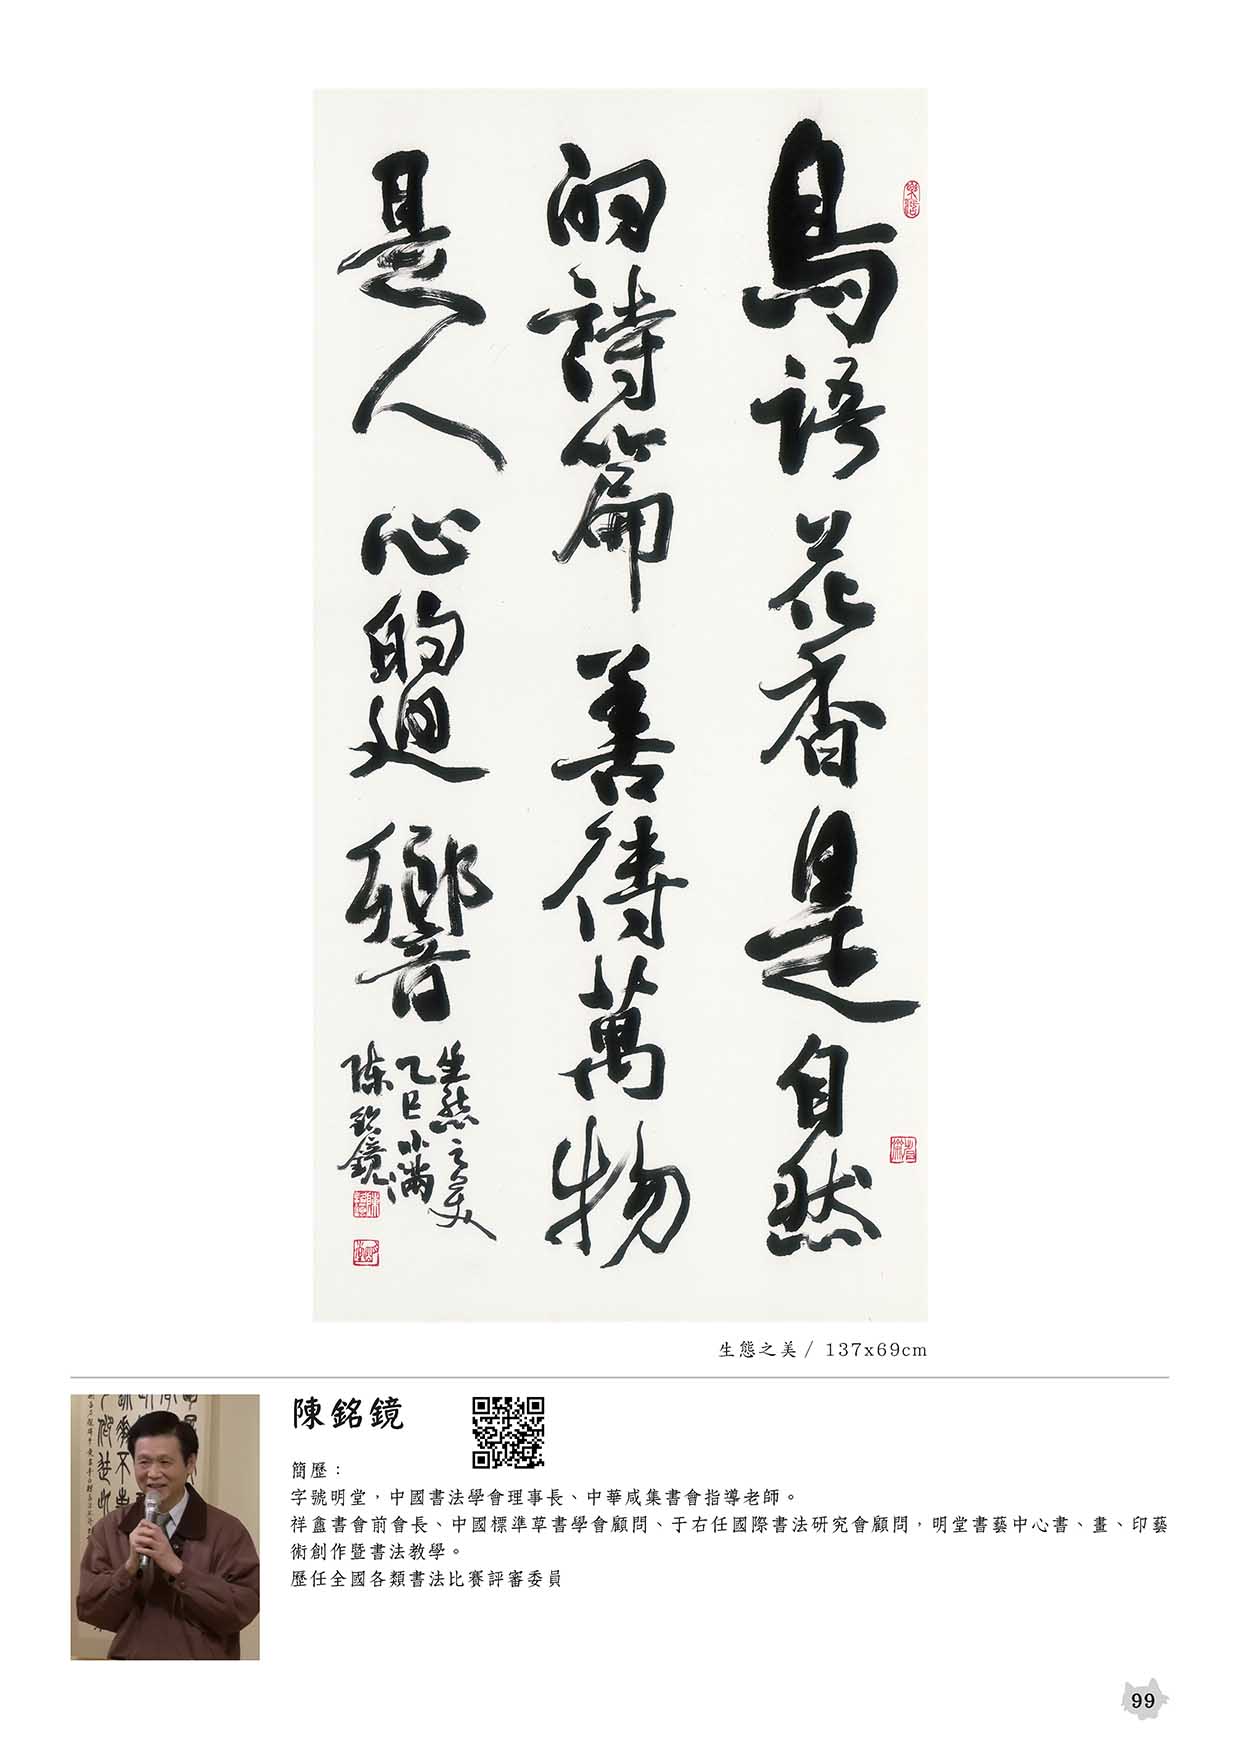 鳥語花香是自然
的詩篇善待萬物
是人心的迴響
生態之美
乙巳小滿
陳銘鏡
生態之美 / 137x69cm
陳銘鏡
簡歷：
字號明堂，中國書法學會理事長、中華咸集書會指導老師。
祥盦書會前會長、中國標準草書學會顧問、于右任國際書法研究會顧問，明堂書藝中心書、畫、印藝
術創作暨書法教學。
歷任全國各類書法比賽評審委員
99